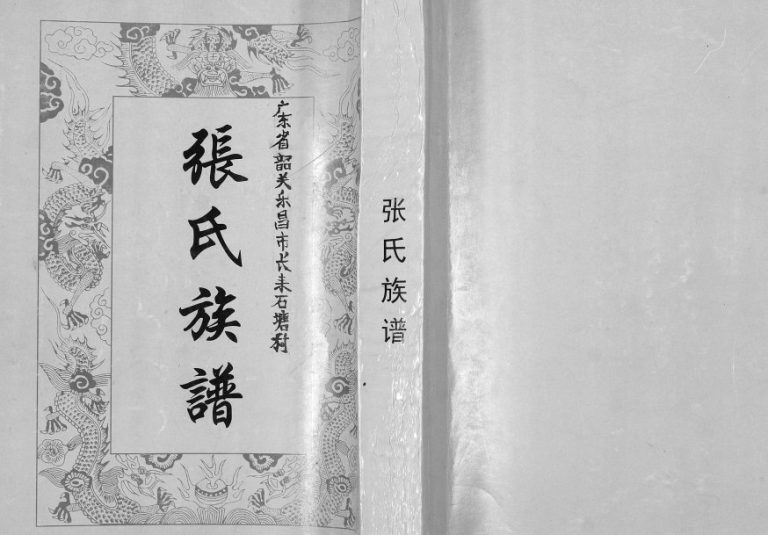 广东省韶关乐昌市长来石塘村
張氏族譜
张氏族谱